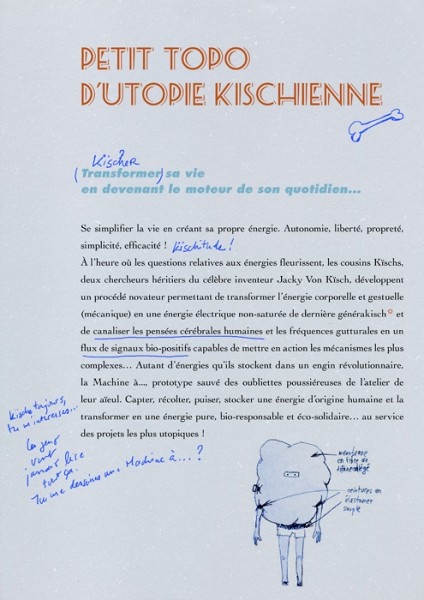 PETIT TOPO
D'UTOPIE KISCHIENNE
Kischer ?
(Transformer) sa vie
en devenant le moteur de son quotidien...
Se simplifier la vie en créant sa propre énergie. Autonomie, liberté, propreté,
simplicité, efficacité ! Kischitude !
À l'heure où les questions relatives aux énergies fleurissent, les cousins Kïschs,
deux chercheurs héritiers du célèbre inventeur Jacky Von Kïsch, développent
un procédé novateur permettant de transformer l'énergie corporelle et gestuelle
(mécanique) en une énergie électrique non-saturée de dernière générakisch et
de canaliser les pensées cérébrales humaines et les fréquences gutturales en un
flux de signaux bio-positifs capables de mettre en action les mécanismes les plus
complexes... Autant d'énergies qu'ils stockent dans un engin révolutionnaire,
la Machine à..., prototype sauvé des oubliettes poussiéreuses de l'atelier de
leur aïeul. Capter, récolter, puiser, stocker une énergie d'origine humaine et la
transformer en une énergie pure, bio-responsable et éco-solidaire... au service
des projets les plus utopiques !
Kische toujours,
tu m'intéresses...
Les gens
vont
jamais lire
tout ça.
Tu me dessines une Machine à...?
membrane
en fibre de
ceintures en
élastomère
souple